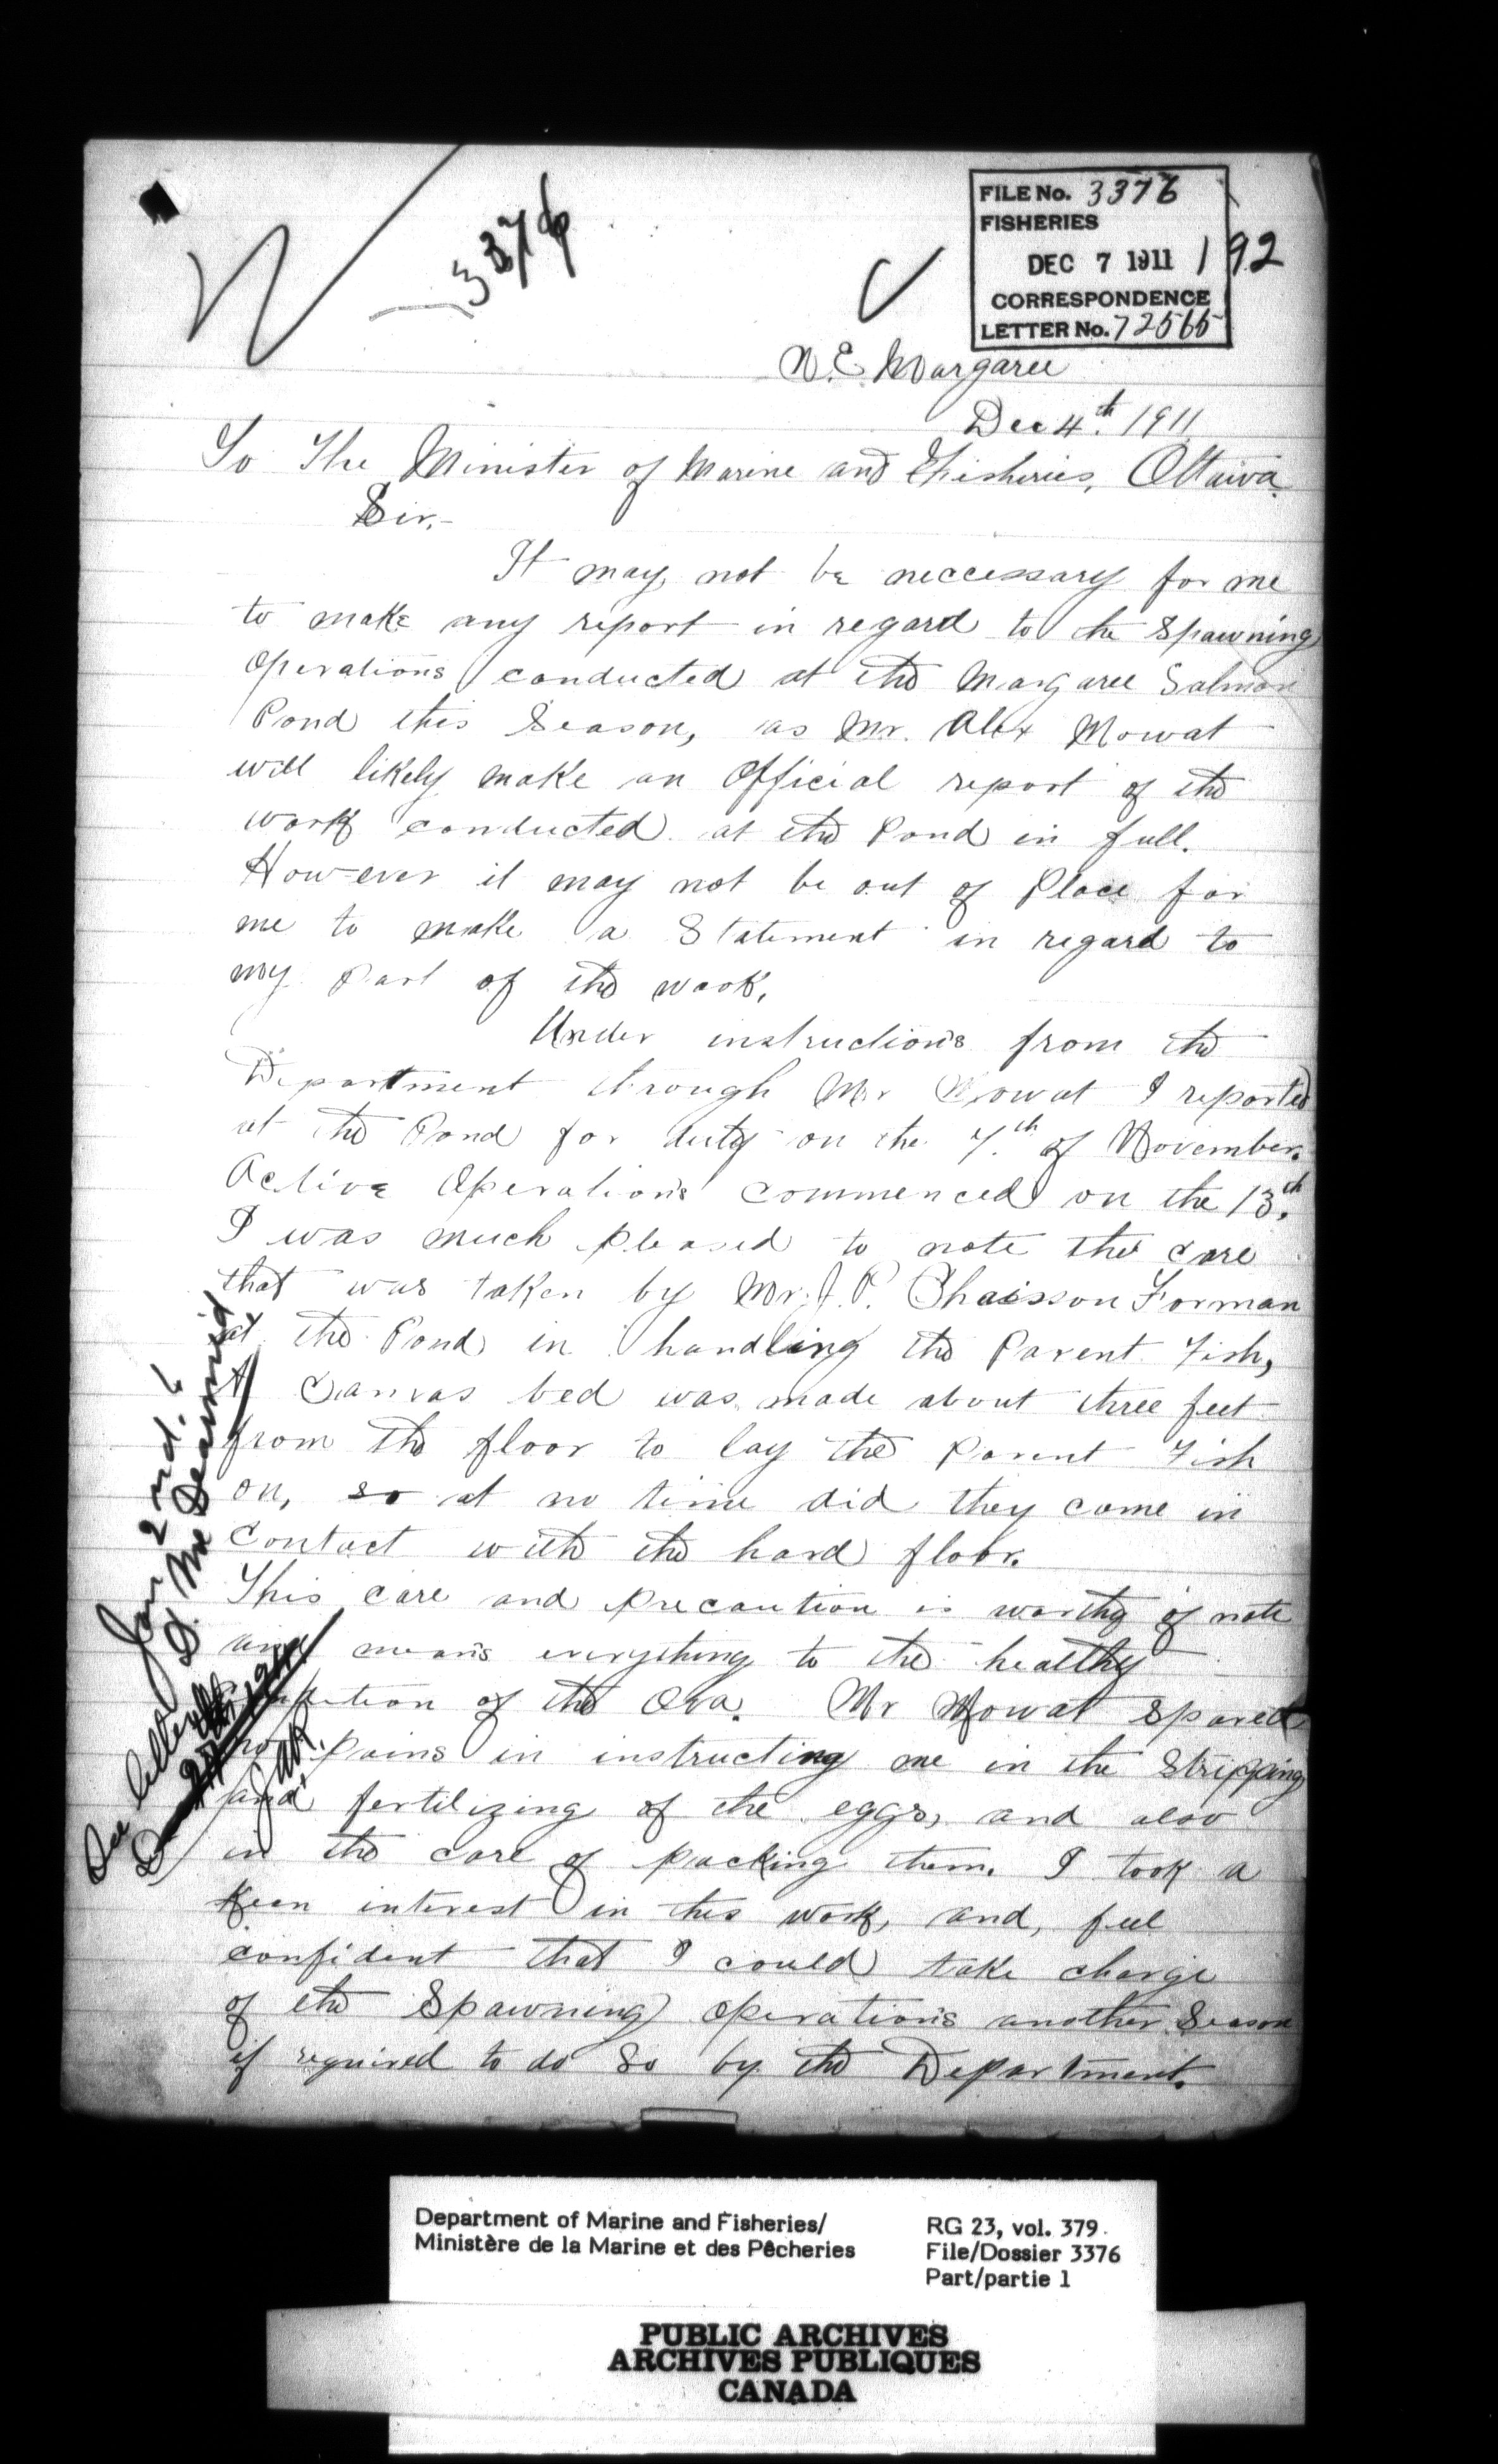 3376
FILE No. 3376
FISHERIES
DEC 7 1911 192
CORRESPONDENCE
LETTER No. 72565
N.E. Margaree
Dec 4th. 1911
To The Minister of Marine and Fisheries, Ottawa.
Sir,-
It may not be neccessary for me
to make any report in regard to the Spawning
Operations conducted at the Margaree Salmon
Pond this Season, as Mr. Alex Mowat
will likely make an Official report of the
work conducted at the Pond in full.
However it may not be out of Place for
me to make a Statement in regard to
my part of the work.
Under instructions from the
Department through Mr Mowat I reported
at the Pond for duty on the 7th of November.
Active Operations commenced on the 13th.
I was much pleased to note the care
that was taken by Mr. J. P. Chaisson Forman
at the Pond in handling the Parent Fish,
A Canvas bed was made about three feet
from the floor to lay the Parent Fish
on, so at no time did they come in
Contact with the hard floor.
This care and precaution is worthy of note
and means everything to the healthy
of the Ova. Mr Mowat Spared
no pains in instructing me in the Stripping
and fertilizing of the eggs, and also
in the care of packing them. I took a
Keen interest in this work, and, feel
confident that I could take charge
of the Spawning operations another Season
if required to do So by the Department.
Jan 2nd. 6
Department of Marine and Fisheries/
Ministère de la Marine et des Pêcheries
RG 23, vol. 379.
File/Dossier 3376
Part/partie 1
PUBLIC ARCHIVES
ARCHIVES PUBLIQUES
CANADA